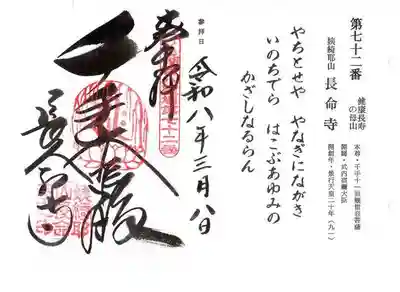 第七十二番
健康長寿の母山
姨綺耶山 長命寺
本尊・千手十一面観世音菩薩
開創年・景行天皇二十年(九一)
やちとせや やなぎにながき
いのちでら はこぶあゆみの
かざしなるらん
参拝日
令和八年三月八日
奉拝
長命寺